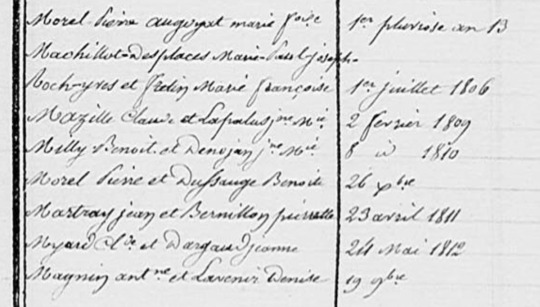 Morel Pierre augoyat marie f.oise 1er pluviose an 13
Machillot-Desplaces Marie-Paul-joseph-
Roch-yves et Fretin Marie françoise 1er juillet 1806
Mazille Claude et Lapalus jne Mie 2 fevrier 1809
Milly Benoit et Denojan jne Mie 8 id 1810
Morel Pierre et Dussauge Benoite 26 xbre
Martray jean et Bernillon pierrette 23 avril 1811
Myard Cde et Dargaud jeanne 24 Mai 1812
Magnin antne et Lavenir Denise 19 9bre